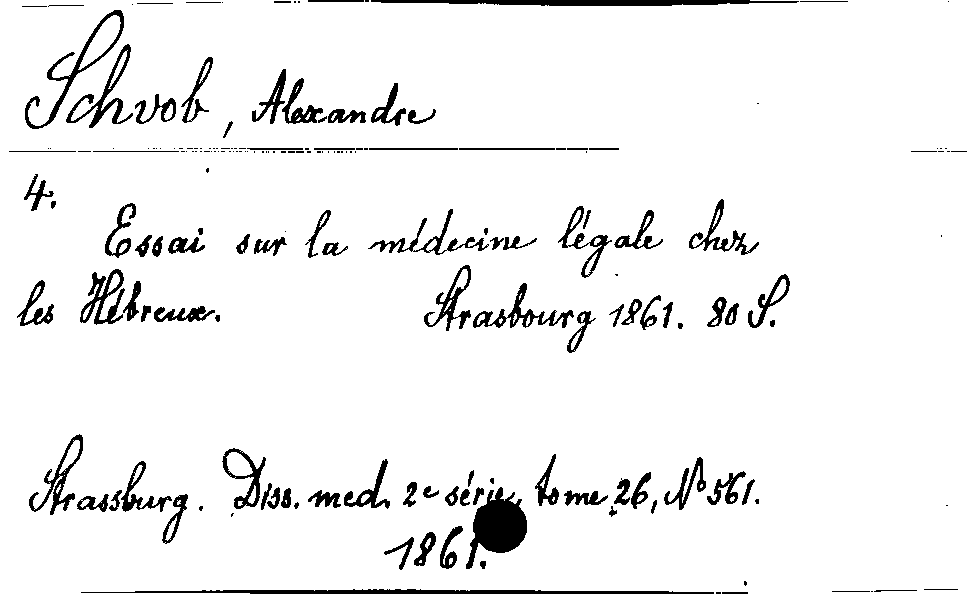 Schvob, Alexandre
4.
Essai sur la médecine légale chez
les Hébreux. Strasbourg 1861. 80 S.
Strassburg. Diss. med. 2e série, tome 26, No 561.
1861.